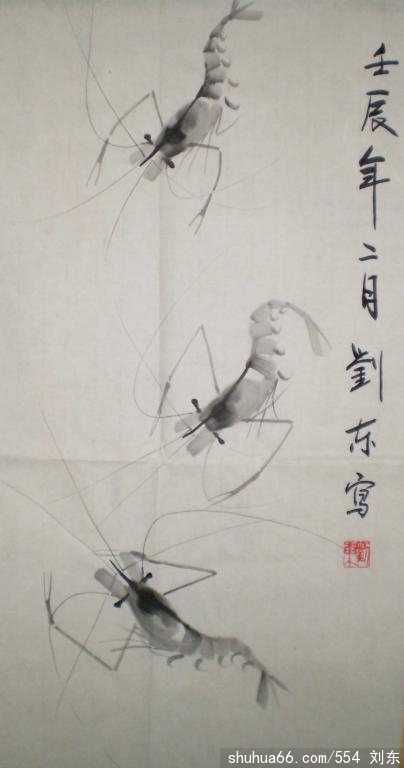 壬辰年二月劉东寫
shuhua66.com/554 刘东